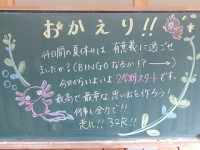 おかえり!!
44日間の夏休みは 有意義に過ごせ
ましたか?(BINGOなるか!?→)
今日からいよいよ2学期スタートです。
最高で最幸な思い出を作ろう!
何事も全力で!!
走れ!! 32R!!